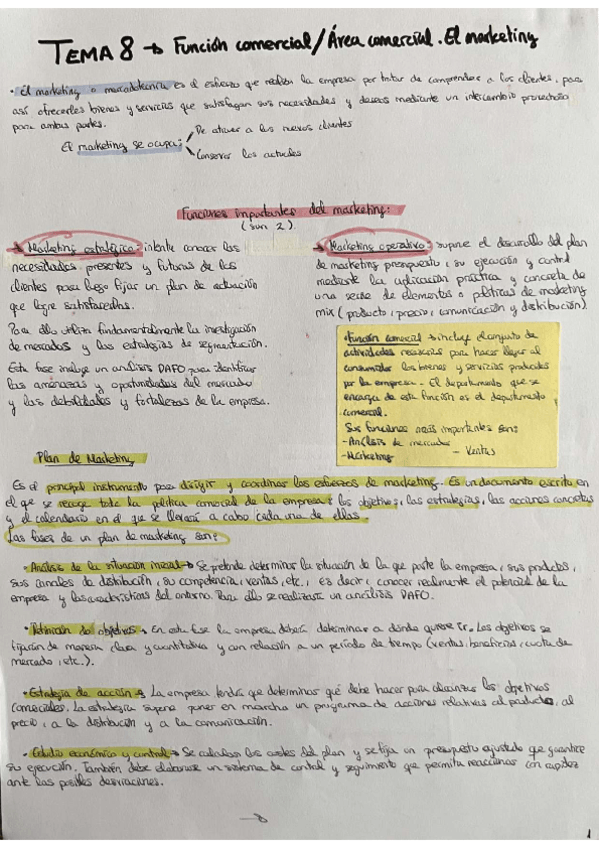 TEMA 8 → Función comercial/Área comercial. El marketing
· El marketing o mercadotecnia es el esfuerzo que realiza la empresa por tratar de comprender a los clientes, para
así ofrecerles bienes y servicios que satisfagan sus necesidades y deseos mediante un intercambio provechoso
para ambas partes.
De atraer a los nuevos clientes
El marketing se ocupa:
Conservar los actuales
Funciones importantes del marketing:
(son 2).
→ Marketing estratégico: intenta conocer las
necesidades presentes y futuras de los
clientes para luego fijar un plan de actuación
que logre satisfacerlas.
Para ello utiliza fundamentalmente la investigación
de mercados y las estrategias de segmentación.
Esta fase incluye un análisis DAFO para identificar
las amenazas y oportunidades del mercado
y las debilidades y fortalezas de la empresa.
→ Marketing operativo: supone el desarrollo del plan
de marketing presupuesto, su ejecución y control
mediante la aplicación práctica y concreta de
una serie de elementos o políticas de marketing
mix (producto, precio, comunicación y distribución)
· Función comercial → incluye el conjunto de
actividades necesarias para hacer llegar al
consumidor los bienes y servicios producidos
por la empresa. El departamento que se
encarga de esta función es el departamento
comercial.
Sus funciones más importantes son:
- Análisis de mercados
- Ventas
- Marketing
Plan de Marketing
Es el principal instrumento para dirigir y coordinar los esfuerzos de marketing. Es un documento escrito en
el que se recoge toda la política comercial de la empresa: los objetivos, las estrategias, las acciones concretas
y el calendario en el que se llevará a cabo cada una de ellas.
Las fases de un plan de marketing son:
· Análisis de la situación inicial → Se pretende determinar la situación de la que parte la empresa, sus productos,
sus canales de distribución, su competencia, ventas, etc., es decir, conocer realmente el potencial de la
empresa y las características del entorno. Para ello se realizará un análisis DAFO.
· Definición de objetivos → En esta fase la empresa debería determinar a dónde quiere ir. Los objetivos se
fijarán de manera clara y cuantitativa y con relación a un período de tiempo (ventas, beneficios, cuota de
mercado, etc.).
· Estrategia de acción → La empresa tendrá que determinar qué debe hacer para alcanzar los objetivos
comerciales. La estrategia supone poner en marcha un programa de acciones relativas al producto, al
precio, a la distribución y a la comunicación.
· Estudio económico y control → Se calculan los costes del plan y se fija un presupuesto ajustado que garantice
su ejecución. También debe elaborarse un sistema de control y seguimiento que permita reaccionar con rapidez
ante las posibles desviaciones.
1